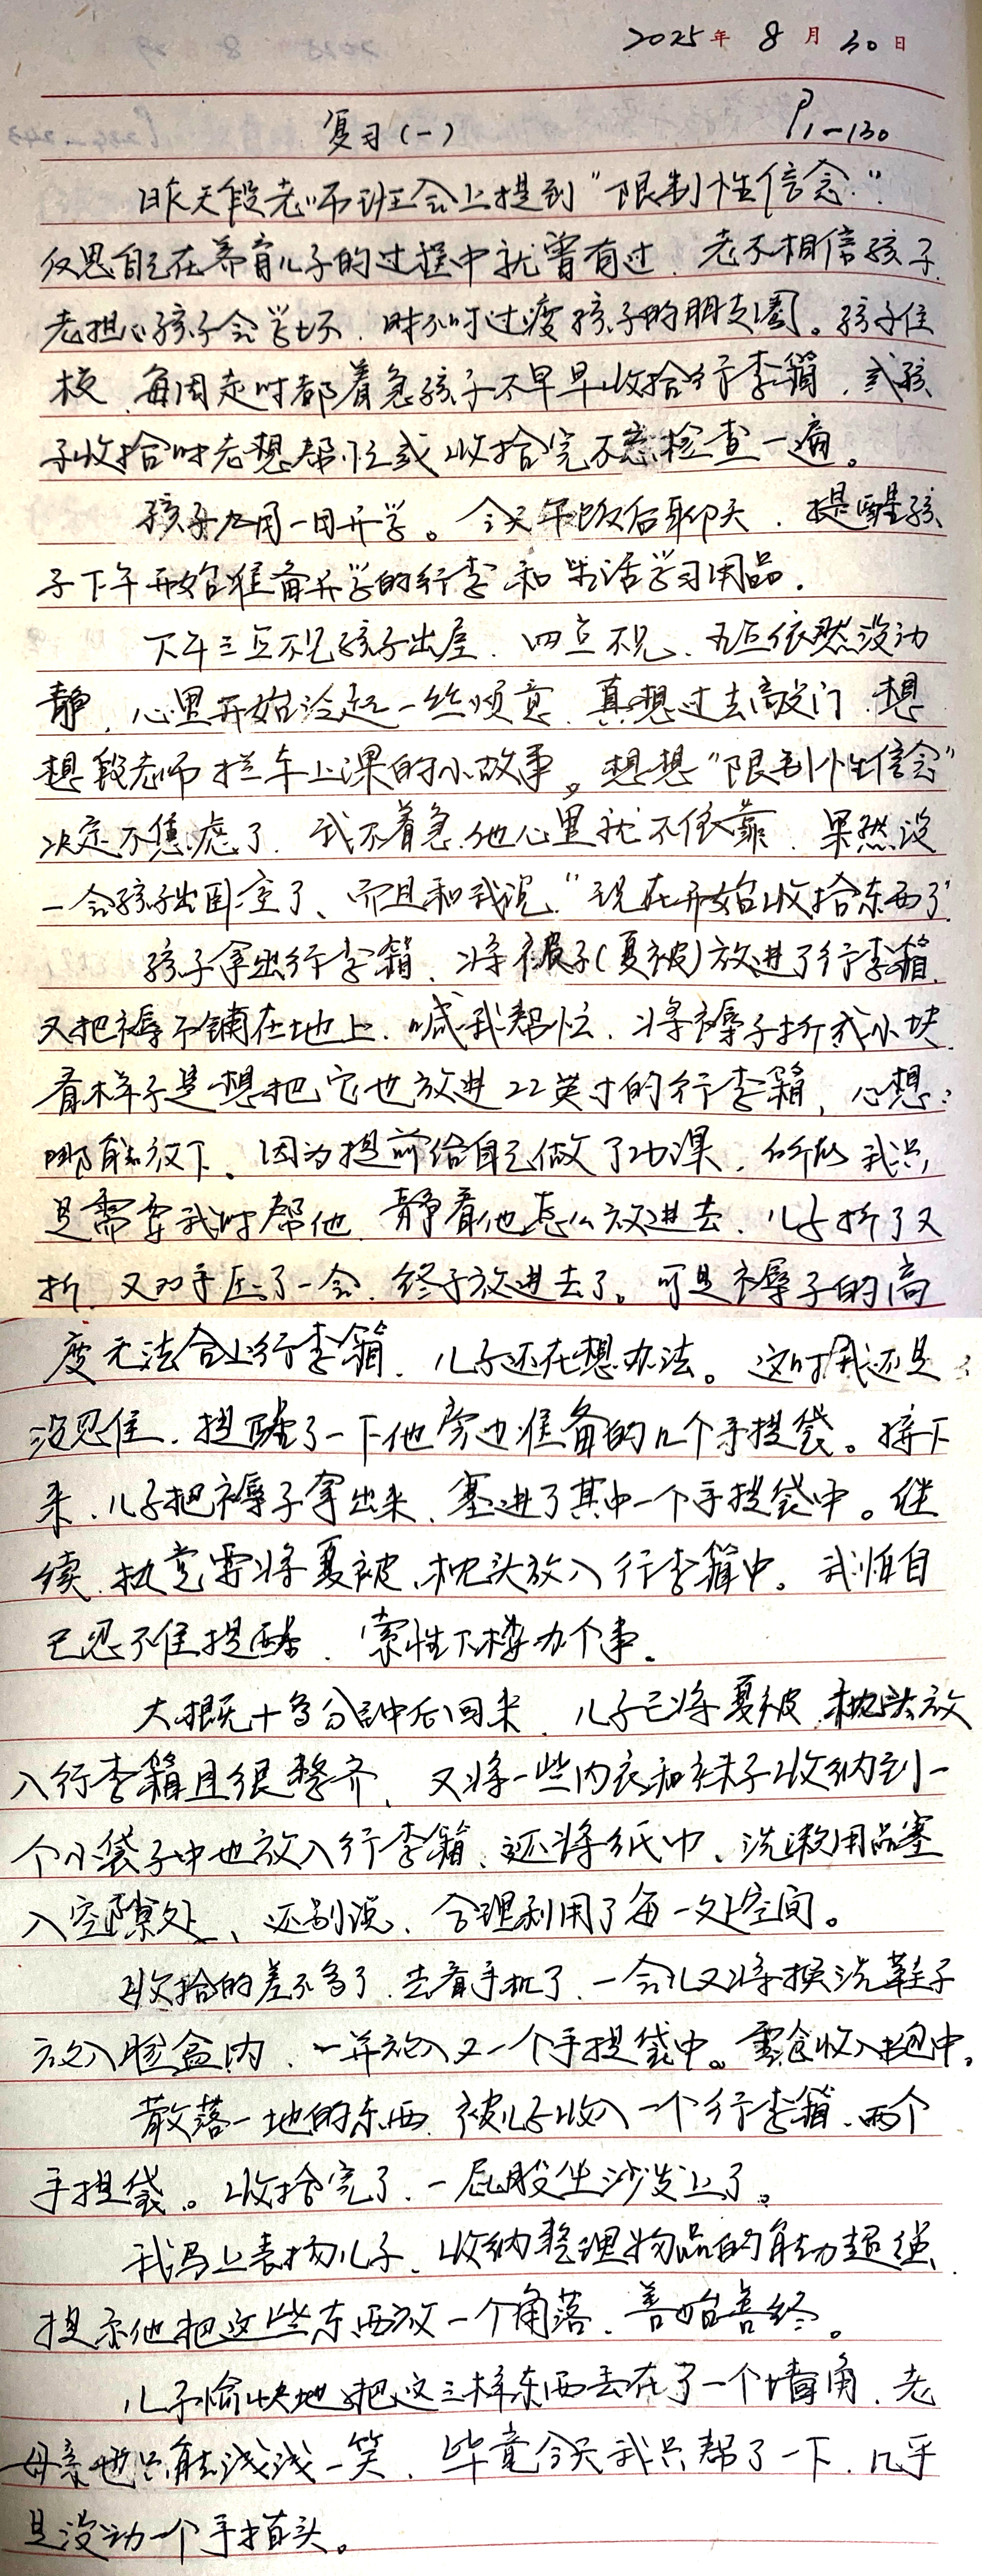 2025年 8月 30日
复习(一) P1-130
昨天段老师班会上提到"限制性信念".
反思自己在养育儿子的过程中就曾有过、老不相信孩子.
老担心孩子会学坏、时不时过度孩子的朋友圈。孩子住
校、每周走时都着急孩子不早早收拾行李箱、或孩
子收拾时老想帮忙或收拾完不忘检查一遍。
孩子九月一日开学。今天午饭后聊天、提醒孩
子下午开始准备开学的行李和生活学习用品.
下午三点不见孩子出屋、四点不见、五点依然没动
静、心里开始泛起一丝烦意、真想过去敲门、想
想段老师拦车上课的小故事。想想"限制性信念"
决定不焦虑了、我不着急.他心里就不依靠、果然没
一会孩子出卧室了、而且和我说"现在开始收拾东西了"
孩子拿出行李箱、将被子(夏被)放进了行李箱、
又把褥子铺在地上、喊我帮忙、将褥子折成小块.
看样子是想把它也放进22英寸的行李箱,心想:
哪能放下、因为提前给自己做了功课、所以我只
是需要我时帮他、静看他怎么放进去、儿子折了又
折、又双手压了一会、终于放进去了。可是褥子的高
度无法合上行李箱、儿子还在想办法。这时我还是
没忍住、提醒了一下他旁边准备的几个手提袋。接下
来、儿子把褥子拿出来、塞进了其中一个手提袋中。继
续、执意要将夏被、枕头放入行李箱中。我怕自
己忍不住提醒、索性下楼办个事。
大概十多分钟后回来、儿子已将夏被、枕头放
入行李箱且很整齐、又将一些内衣和袜子收纳到一
个小袋子中也放入行李箱、还将纸巾、洗漱用品塞
入空隙处、还别说、合理利用了每一处空间。
收拾的差不多了、去看手机了、一会儿又将换洗鞋子
放入脸盆内、一并放入又一个手提袋中。零食收入书包中。
散落一地的东西、被儿子收入一个行李箱、两个
手提袋。收拾完了、一屁股坐沙发上了。
我马上表扬儿子、收纳整理物品的能力超强、
提示他把这些东西放一个角落、善始善终。
儿子愉快地把这三样东西丢在了一个墙角、老
母亲也只能浅浅一笑、毕竟今天我只帮了一下、几乎
是没动一个手指头。